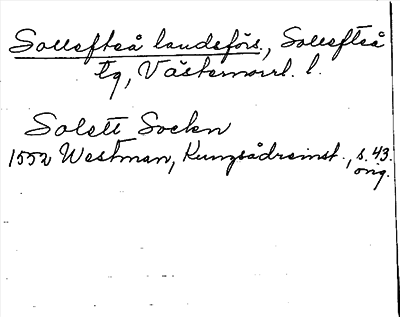 Sollefteå landsförs., Sollefteå
tg, Västernorrl. l.
Solett Sockn
1552 Westman, Kungsådreinst., s. 43.
orig.